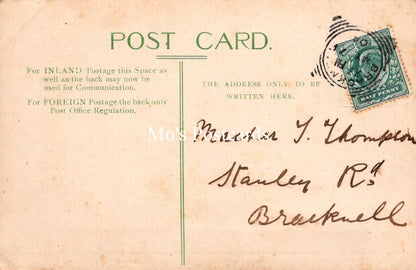 POST CARD.
For INLAND Postage this Space as
well as the back may now be
used for Communication.
For FOREIGN Postage the back only
Post Office Regulation.
THE ADDRESS ONLY TO BE
WRITTEN HERE.
HALF PENNY
Mo's Postcards
Master T. Thompson
Stanley Rd
Bracknell